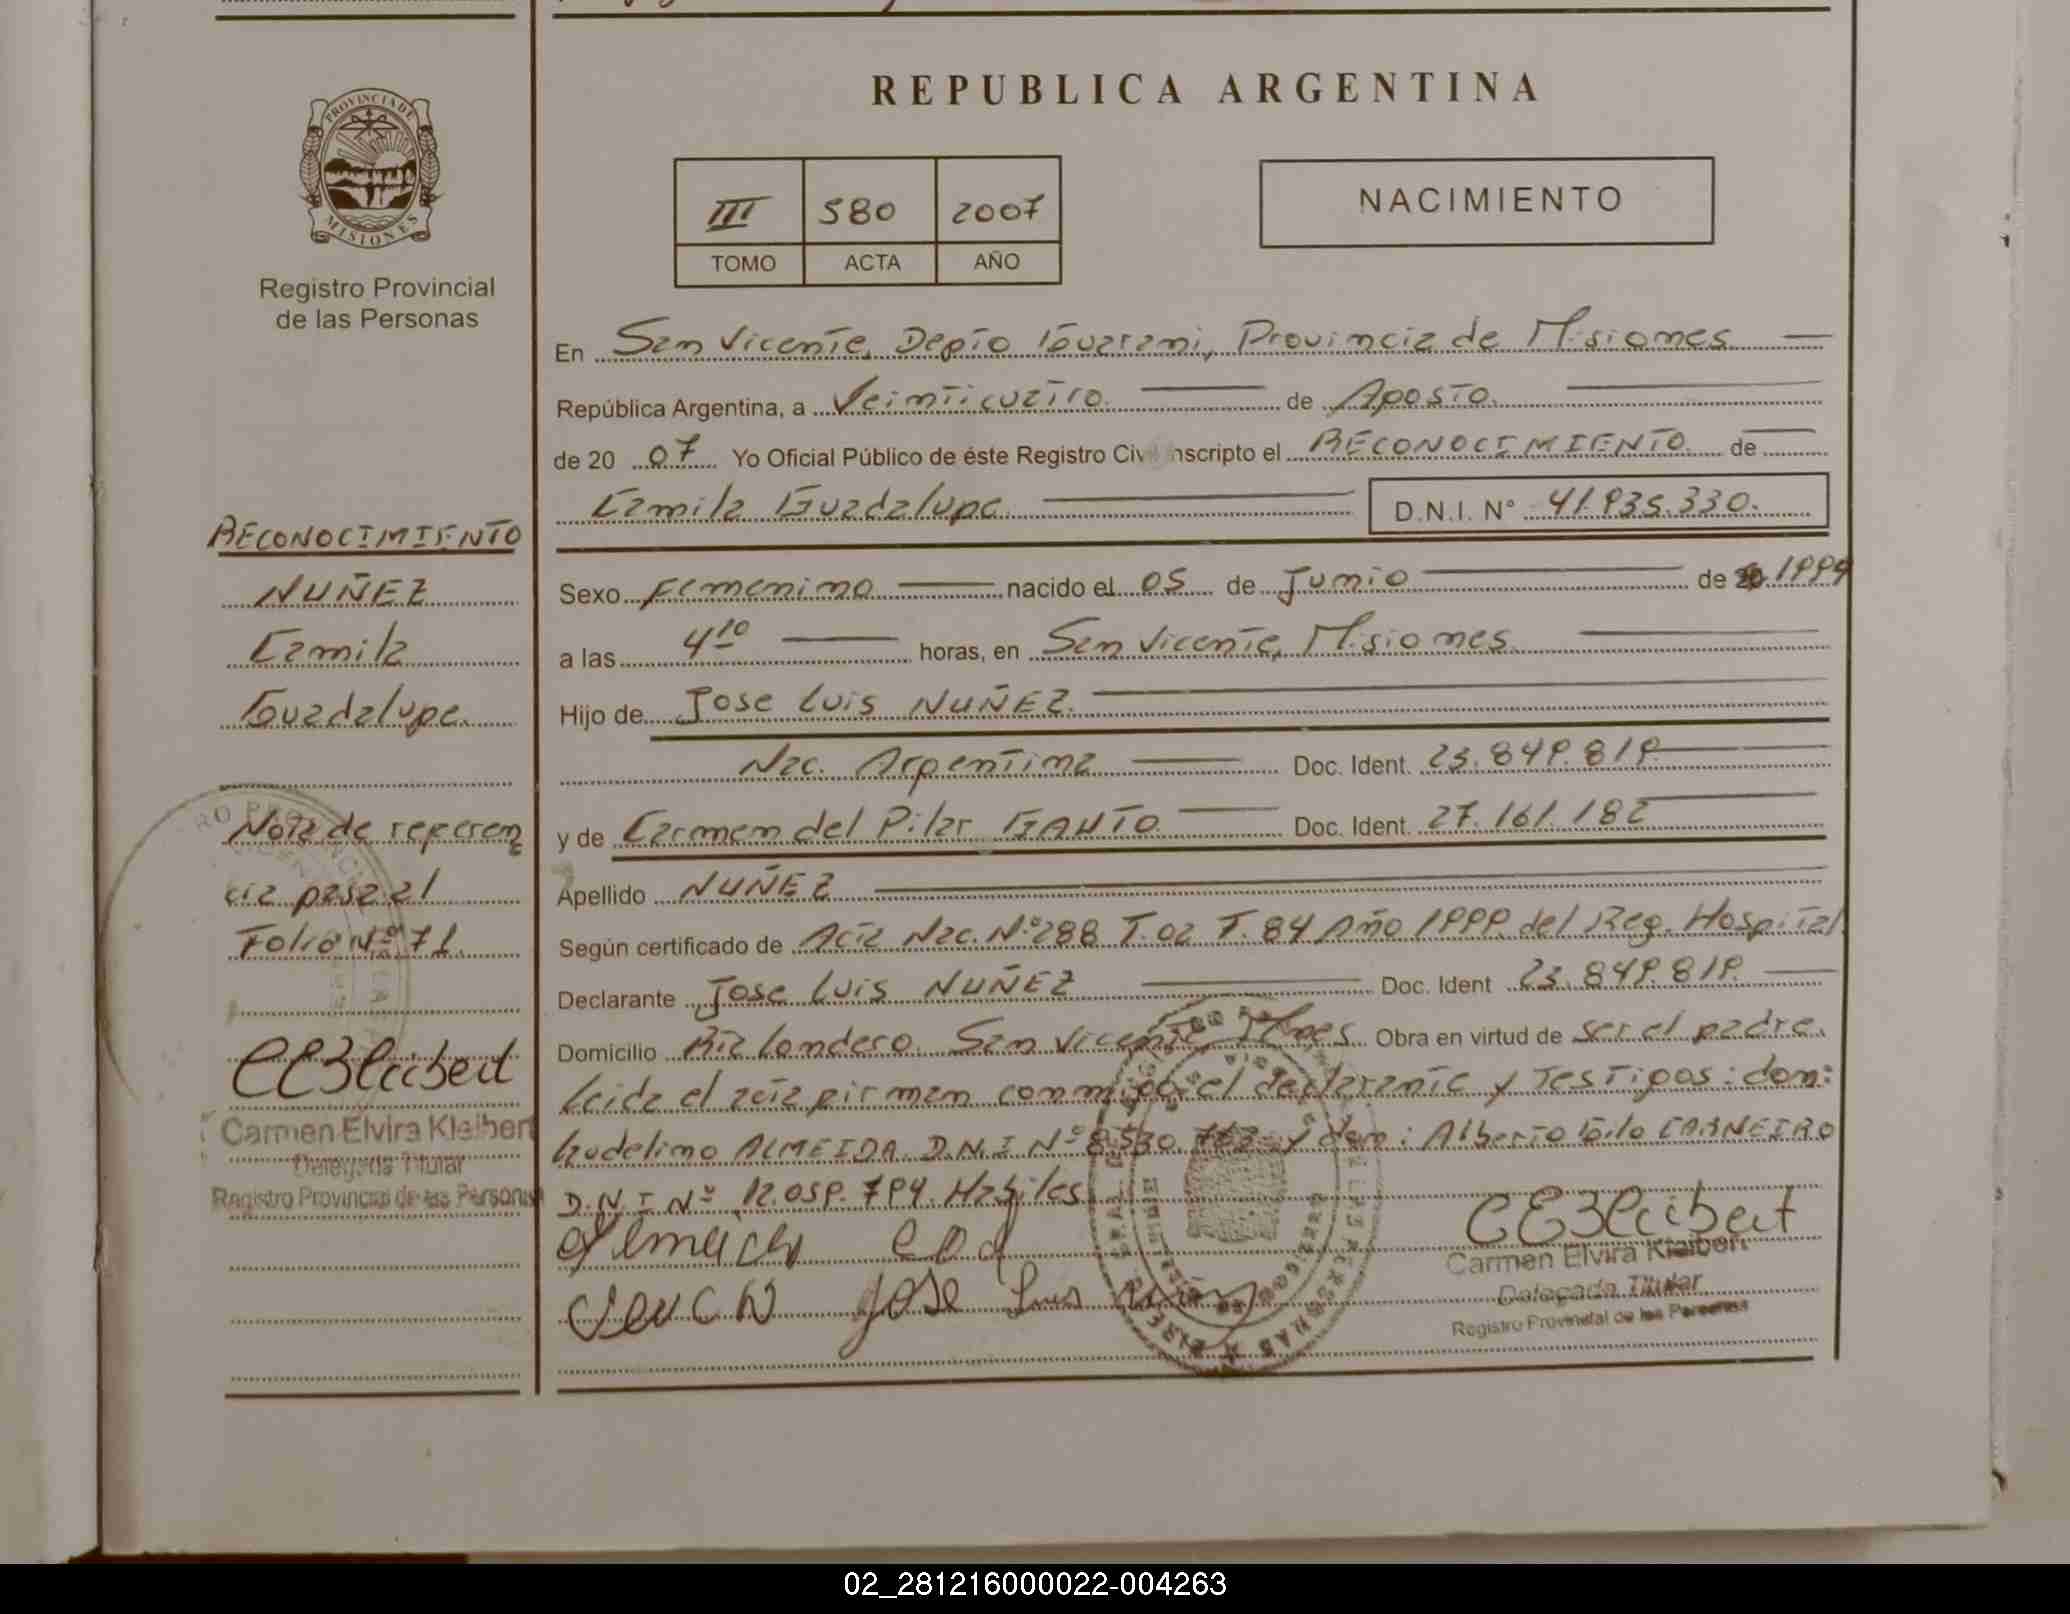 REPUBLICA ARGENTINA
PROVINCIA DE
MISIONES
Registro Provincial
de las Personas
III 580 2007
TOMO ACTA AÑO
NACIMIENTO
En San Vicente, Depto Guarani, Provincia de Misiones
República Argentina, a Veinticuatro de Agosto
de 20 07 Yo Oficial Público de éste Registro Civil inscripto el RECONOCIMIENTO de
Camila Guadalupe D.N.I. N° 41.935.330.
Sexo Femenino nacido el 05 de Junio de 1999
a las 4 10 horas, en San Vicente, Misiones.
Hijo de Jose Luis NUÑEZ.
Nac. Argentina Doc. Ident. 23.849.819
y de Carmen del Pilar GAUTO Doc. Ident. 27.161.182
Apellido NUÑEZ
Según certificado de Acta Nac. Nº 288 T. 02 F. 84 Año 1999 del Reg. Hospital
Declarante Jose Luis NUÑEZ Doc. Ident 23.849.819.
Domicilio Ria Londero. San Vicente Mnes. Obra en virtud de ser el padre.
Leida el acta firman conmigo el declarante y Testigos: don:
ALMEIDA D.N.I Nº 8.530. y don: Alberto CARNEIRO
D.N.I Nº 12.059.794. Habiles
Jose Luis
CEKleibert
Carmen Elvira Kleibert
Delegada Titular
Registro Provincial de las Personas
RECONOCIMIENTO
NUÑEZ
Camila
Guadalupe.
Nota de referen
cia pasa al
Folio Nº 71.
CEKleibert
Carmen Elvira Kleibert
Delegada Titular
Registro Provincial de las Personas
02_281216000022-004263